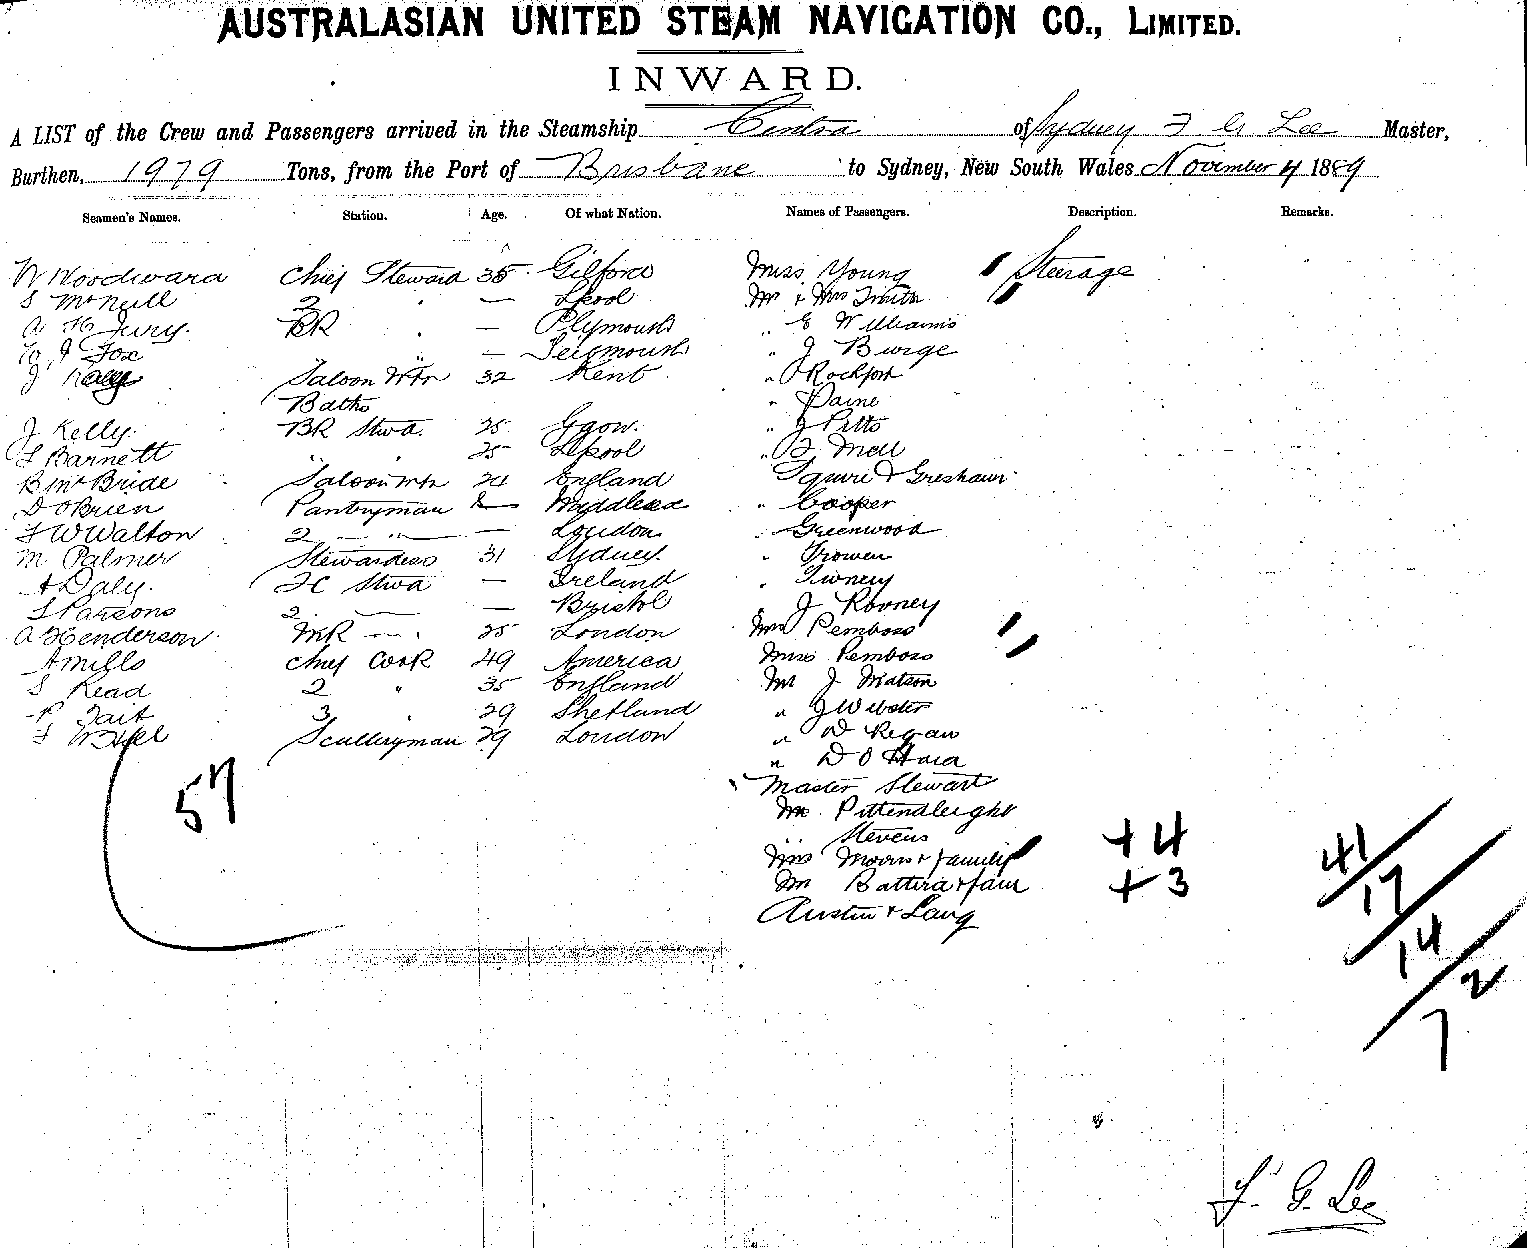 AUSTRALASIAN UNITED STEAM NAVIGATION CO., LIMITED.
INWARD.
A LIST of the Crew and Passengers arrived in the Steamship Centra of Sydney F G Lee Master,
Burthen, 1979 Tons, from the Port of Brisbane to Sydney, New South Wales November 4 1889
Seamen's Names. Station. Age. Of what Nation. Names of Passengers. Description. Remarks.
W Woodward Chief Steward 35 Gilford Miss Young Steerage
S McNeill 2 " — Lpool Mr & Mrs Smith
A H Jury. BR " — Plymouth " E Williams
W J Fox " " — Teignmouth " J Burge
J Saloon Wtr 32 Kent " Rockfort
Baths " Paine
J Kelly. BR Stwd. 25 Ggow. " J Pitts
F Barnett " " 25 Lpool "
B McBride Saloon Wtr 24 England Squire & Gresham
D OBrien Pantryman — Middlesex " Cooper
F W Walton 2 — " — — London " Greenwood
M Palmer Stewardess 31 Sydney "
A Daly. FC Stwd — Ireland "
S Parsons 2 — — Bristol " J Rooney
A Henderson MR — " 25 London Mrs Pemboss
A Mills Chief Cook 49 America Miss Pemboss
S Read 2 " 35 England Mr J Watson
P Tait 3 " 29 Shetland " J Webster
F Sculleryman 29 London " D Regan
" D O Hara
Master Stewart
57 Mr Pittendleight
" Stevens
Mrs Morris & family + 4 41
Mr & fam + 3 17
Austin & Lang
14
2
7
F. G. Lee